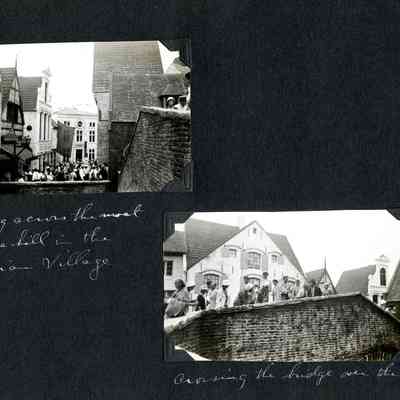 across the moat
hill in the
ian Village
Crossing the bridge over the